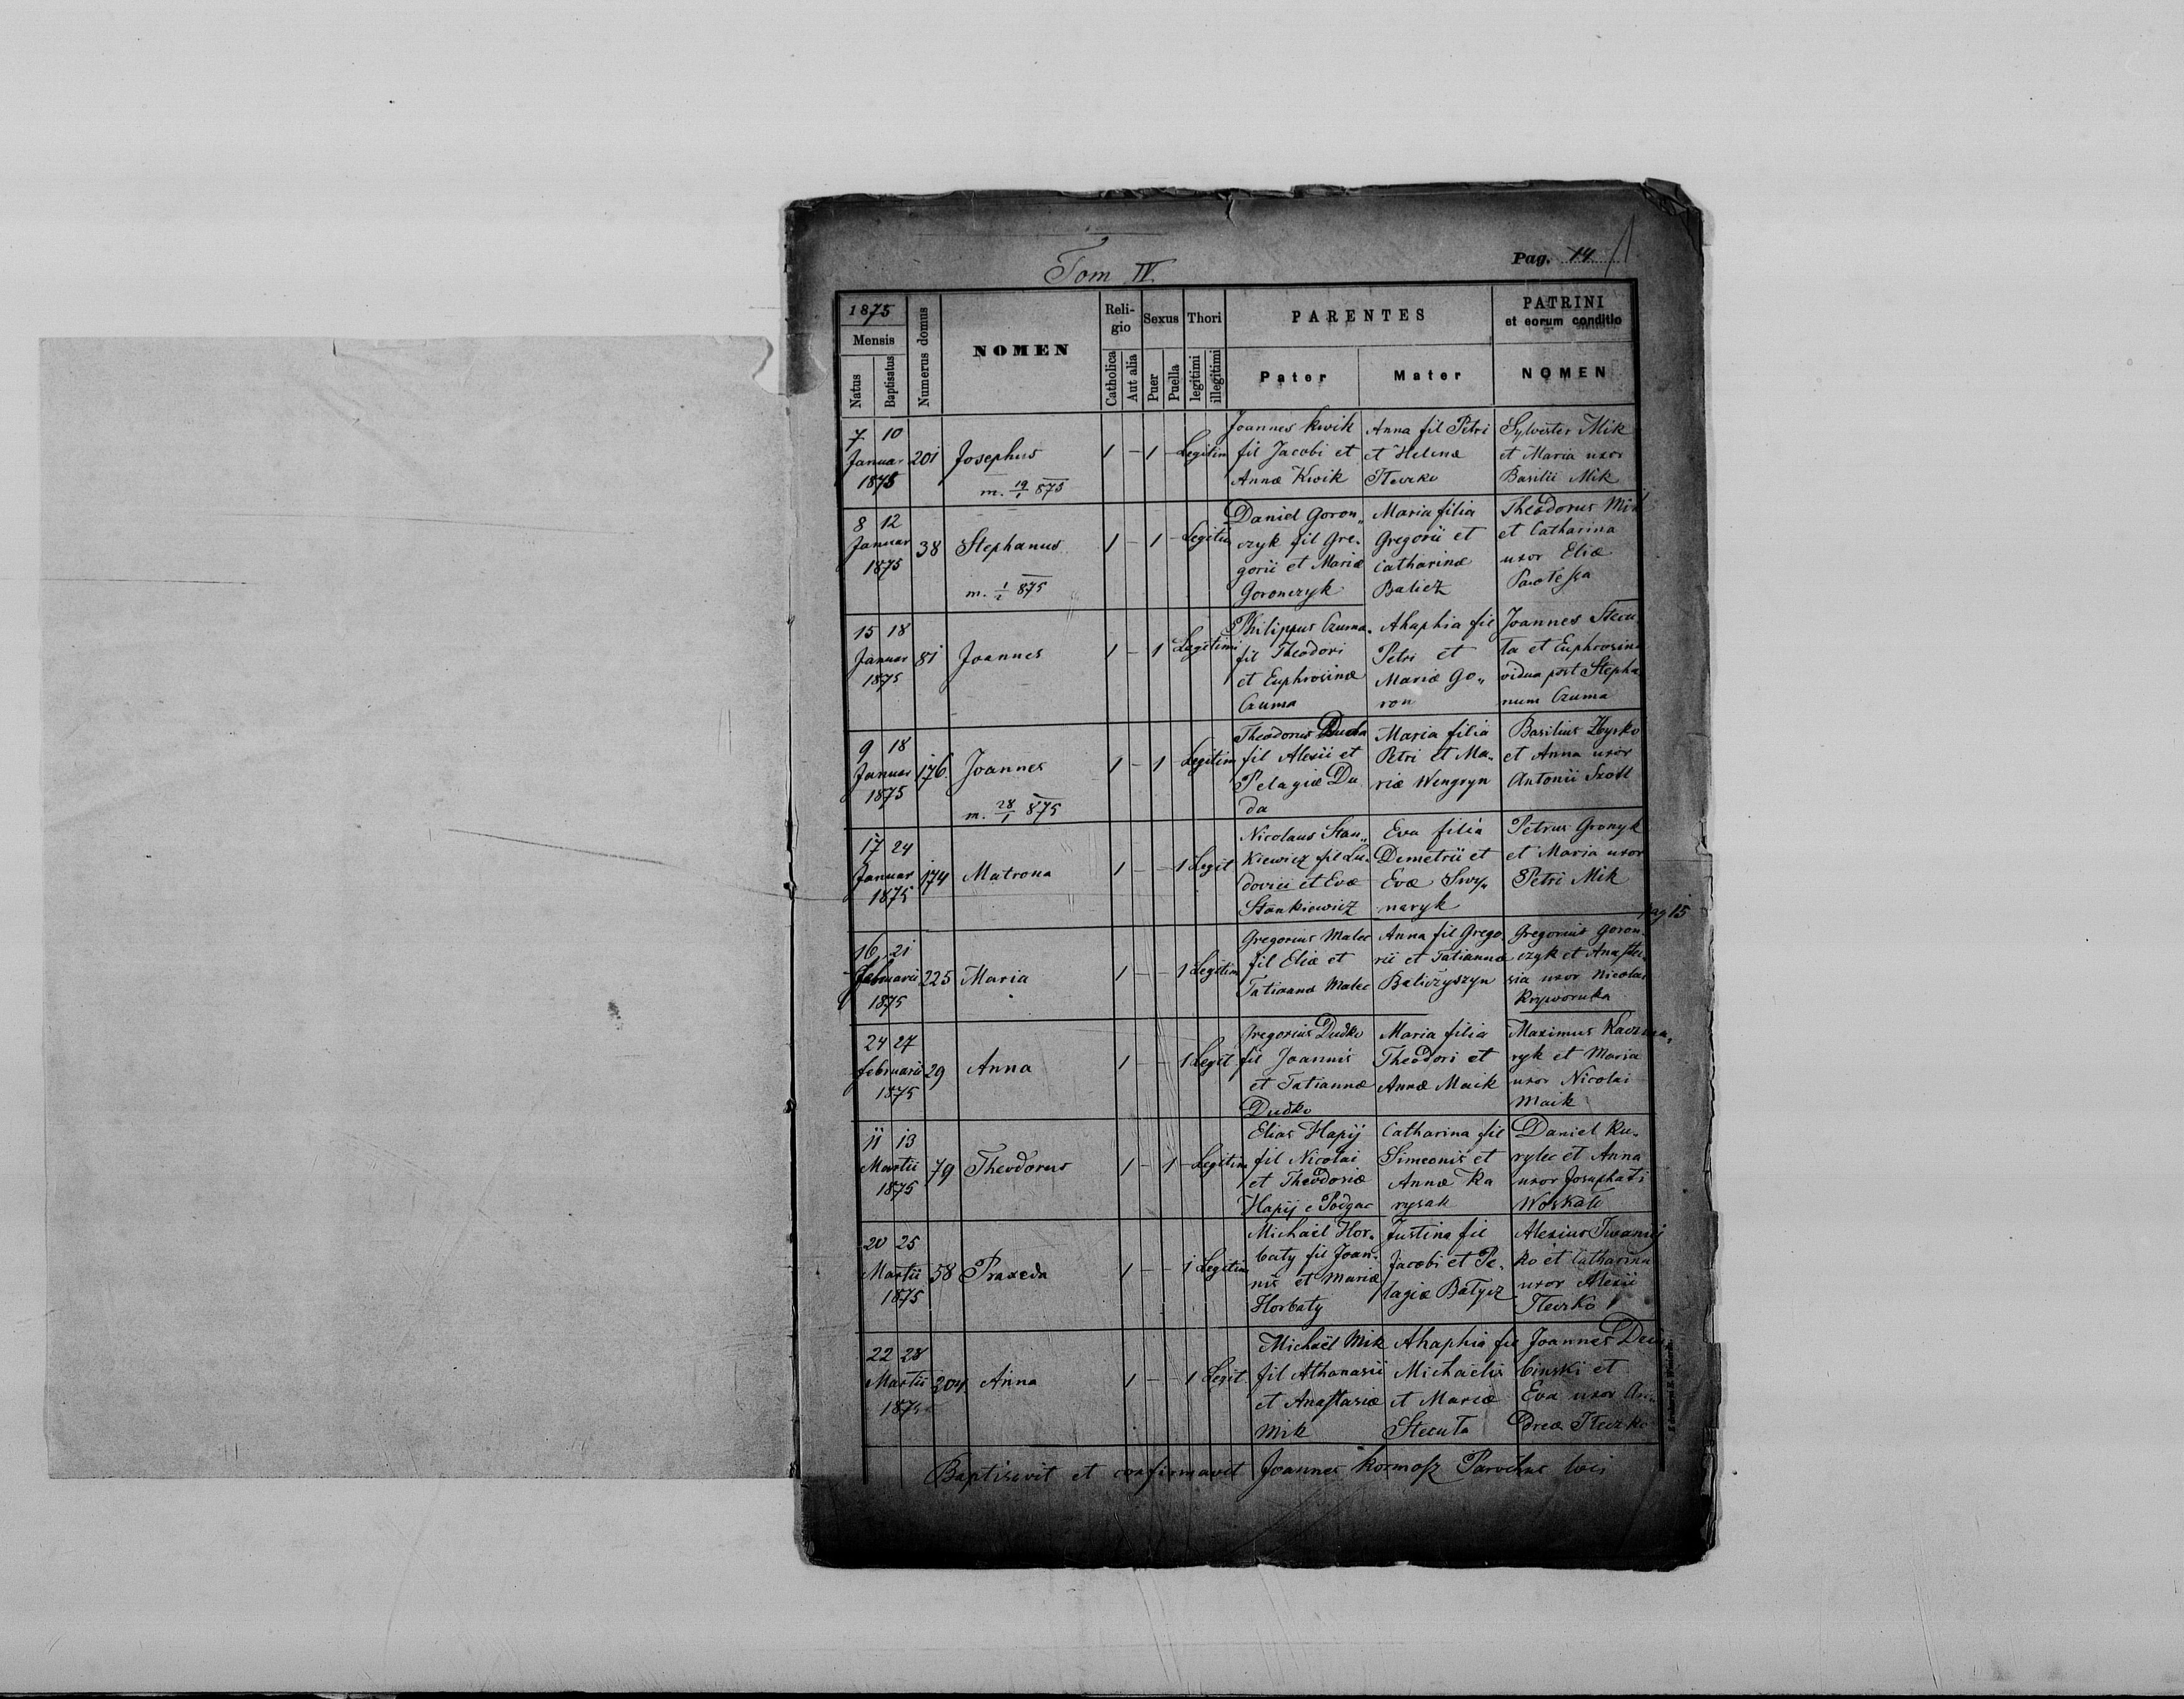 Tom IV
Pag. 14
1875
Mensis
Natus
Baptisatus
Numerus domus
NOMEN
Reli-
gio
Catholica
Aut alia
Sexus
Puer
Puella
Thori
legitimi
illegitimi
PARENTES
Pater
Mater
PATRINI
et eorum conditio
NOMEN
7. 10 Januar 1875 201 Josephus m. 19/1 875 1 - 1 - Legitim
Joannes Kwik
fil Jacobi et
Annæ Kwik
Anna fil Petri
et Helenæ
Steczko
Sylvester Mik
et Maria uxor
Basilii Mik
8 12 Januar 1875 38 Stephanus m. 1/2 875 1 - 1 - Legitim
Daniel Goron„
czyk fil Gre-
gorii et Mariæ
Goronczyk
Maria filia
Gregorii et
Catharinæ
Balicz
Theodorus Mik
et Catharina
uxor Eliæ
15 18 Januar 1875 81 Joannes 1 - 1 Legitimi
Philippus Czuma
fil Theodori
et Euphrosinæ
Czuma
Ahaphia fil
Petri et
Mariæ Go„
ron
Joannes Stecu
ta et Euphrosina
vidua post Stepha
num Czuma
9 18 Januar 1875 176. Joannes m. 28/1 875 1 - 1 - Legitim
Theodorus Duda
fil Alexii et
Pelagiæ Du
da
Maria filia
Petri et Ma-
riæ Wengryn
Basilius Zbyrko
et Anna uxor
Antonii
17 24 Januar 1875 174 Matrona 1 - - 1 Legit
Nicolaus Stan„
kiewicz fil Lu-
dovici et Evæ
Stankiewicz
Eva filia
Demetrii et
Evæ Swy-
naryk
Petrus Gronyk
et Maria uxor
Petri Mik
pag 15
16 21 Februarii 1875 225 Maria 1 - - 1 Legitim
Gregorius Malec
fil Eliæ et
Tatiannæ Malec
Anna fil Grego
rii et Tatiannæ
Baliczyszyn
Gregorius Goron-
czyk et Anasta
sia uxor Nicolai
Kryworuka
24 27 februarii 1875 29 Anna 1 - - 1 Legit
Gregorius Dudko
fil Joannis
et Tatiannæ
Dudko
Maria filia
Theodori et
Annæ Maik
Maximus Kaczma„
ryk et Maria
uxor Nicolai
Maik
11 13 Martii 1875 79 Theodorus 1 - 1 - Legitim
Elias Hapij
fil Nicolai
et Theodosiæ
Hapij e Podgac
Catharina fil
Simeonis et
Annæ Ka
rysak
Daniel Ku-
rylec et Anna
uxor Josaphati
20 25 Martii 1875 58 Praxeda 1 - - 1 Legitim
Michael Hor-
baty fil Joan-
nis et Mariæ
Horbaty
Justina fil
Jacobi et Pe-
lagiæ Batycz
Alexius Iwanej
ko et Catharina
uxor Alexii
Steczko
22 28 Martii 1875 204 Anna 1 - - 1 Legit
Michaël Mik
fil Athanasii
et Anastasiæ
Mik
Ahaphia fil
Michaëlis
et Mariæ
Stecuta
Joannes
binski et
Eva uxor An„
dreæ Steczko
Baptisavit et confirmavit Joannes Kormosz Parochus loci